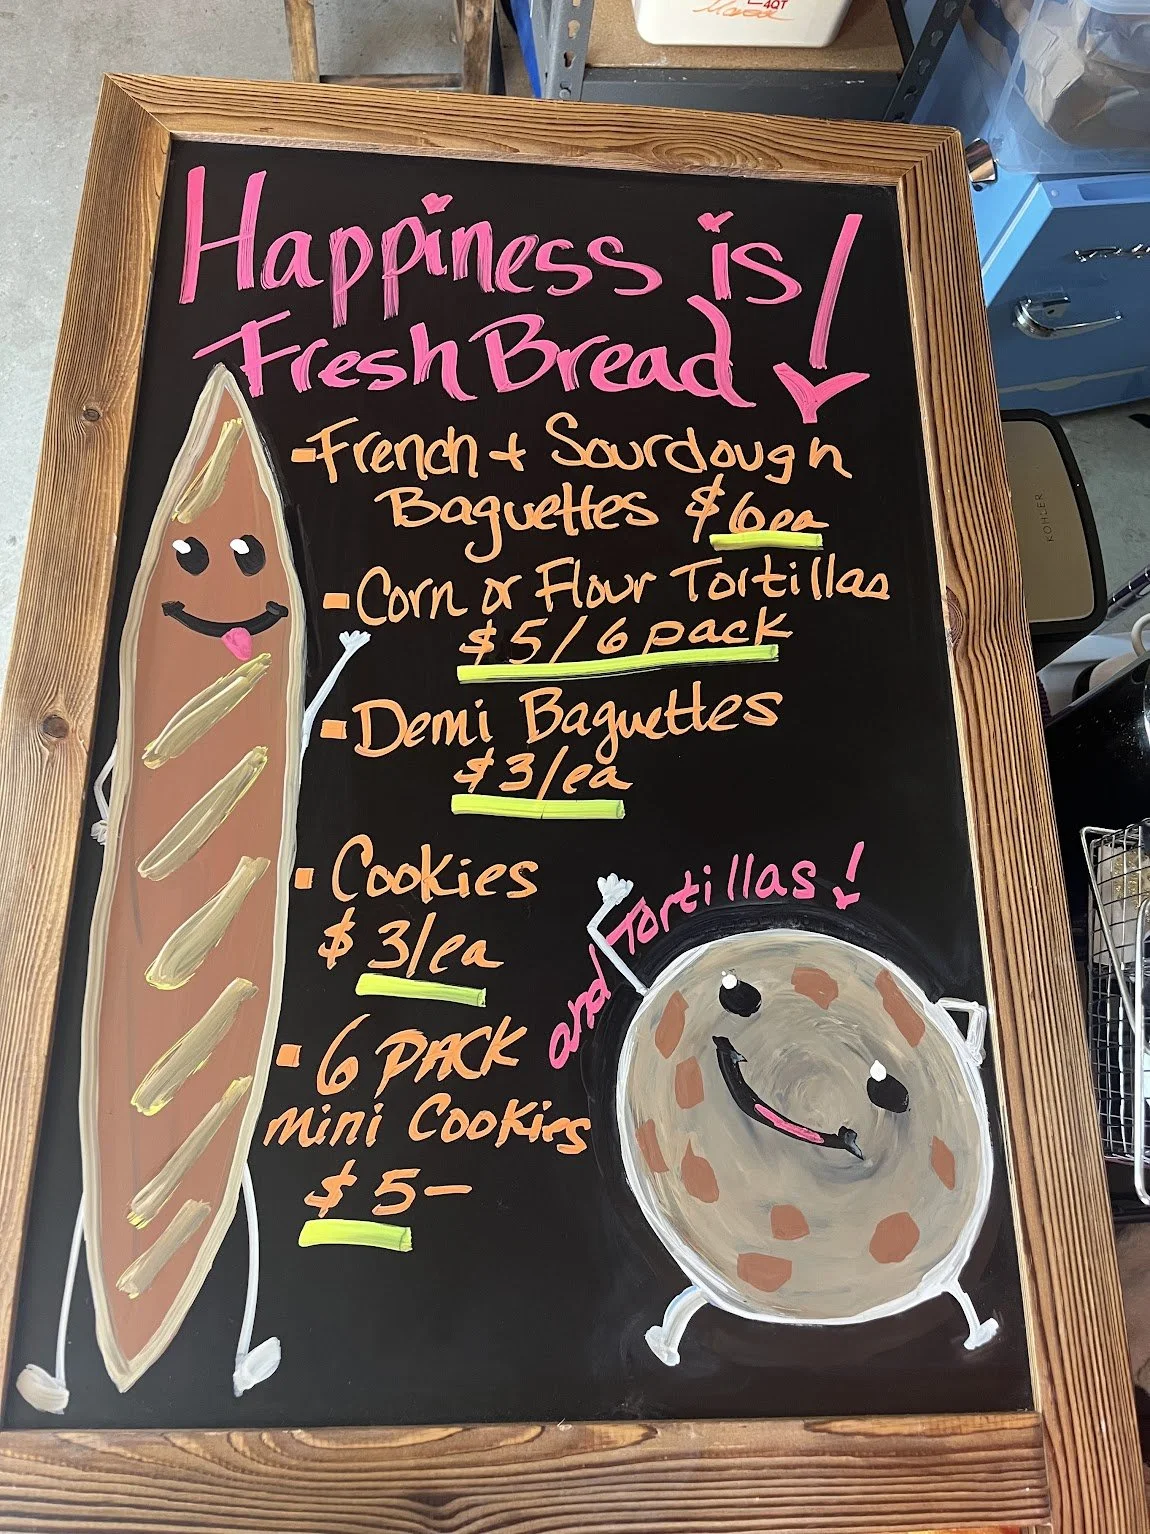 4QT
Happiness is !
Fresh Bread
- French + Sourdough
Baguettes $6ea
- Corn or Flour Tortillas
$5/6 pack
- Demi Baguettes
$3/ea
- Cookies
$3/ea
- 6 PACK
mini Cookies
$5-
and Tortillas!
KOHLER